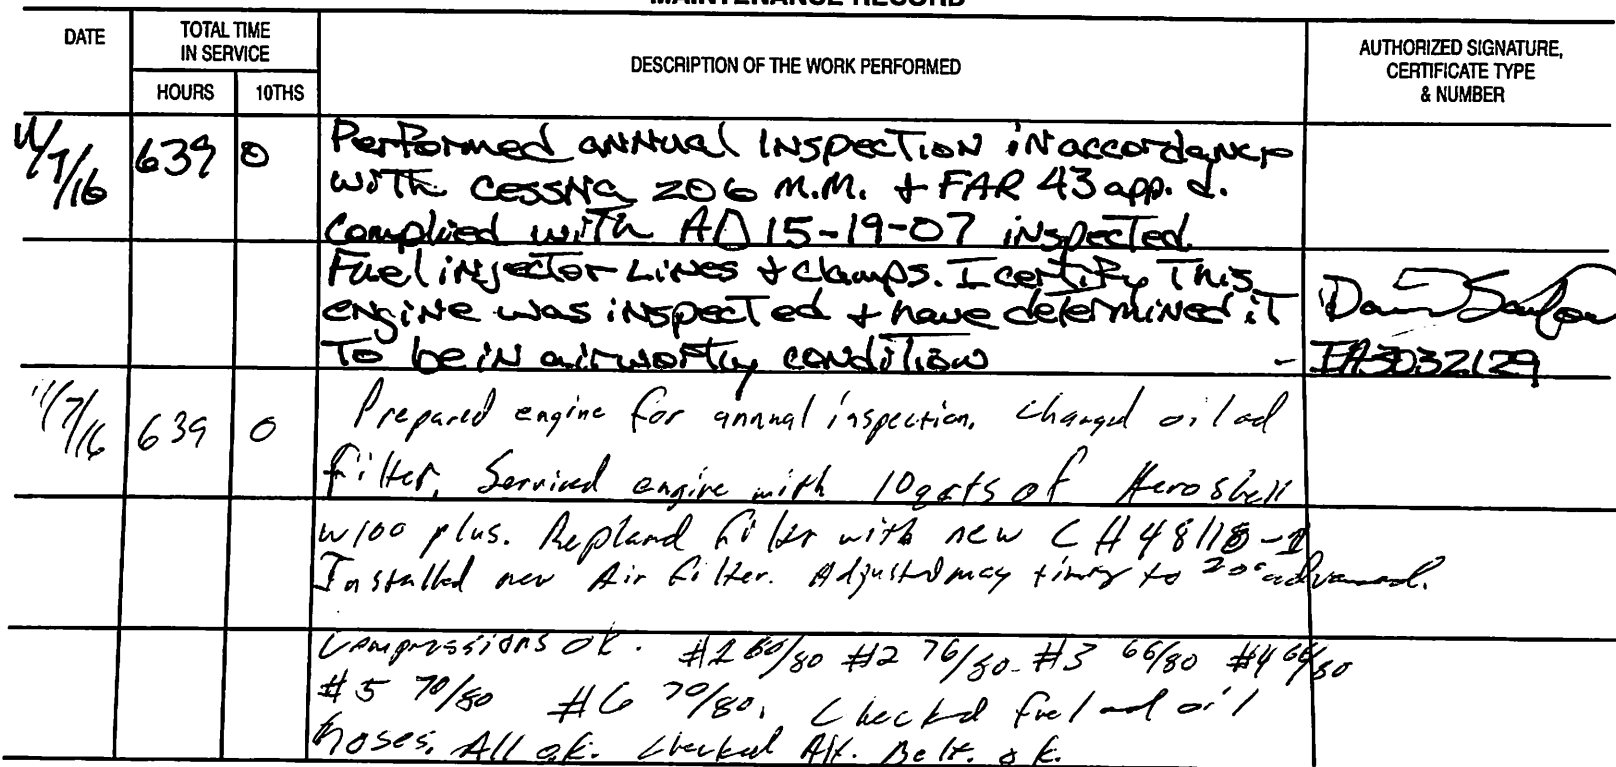 MAINTENANCE RECORD
DATE
TOTAL TIME
IN SERVICE
HOURS
10THS
DESCRIPTION OF THE WORK PERFORMED
AUTHORIZED SIGNATURE,
CERTIFICATE TYPE
& NUMBER
11/7/16 639 0
Performed annual inspection in accordance
with Cessna 206 M.M. + FAR 43 app. d.
Complied with AD 15-19-07 inspected
Fuel injector Lines + clamps. I certify This
engine was inspected + have determined it
To be in airworthy condition -
IA3032129
11/7/16 639 0
Prepared engine for annual inspection. Changed oil ad
filter. Serviced engine with 10 qrts of Aeroshell
W100 plus. Replaced filter with new CH48118-1
Installed new Air filter. Adjusted mag timing to 20° advanced.
Compressions ok. #1 60/80 #2 76/80 #3 66/80 #4 66/80
#5 70/80 #6 70/80. Checked fuel and oil
hoses. All ok. Checked Alt. Belt. ok.